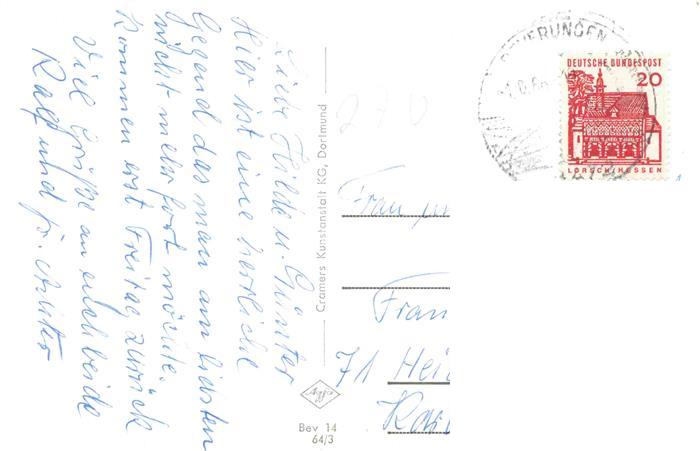 Liebe Hilde u. Günter
Hier ist eine herrliche
Gegend das man am liebsten
nicht mehr fort möchte.
Kommen erst Freitag zurück
Viel Grüße an euch beide
Ralf und
Cramers Kunstanstalt KG, Dortmund
Agfa
Bev 14
64/3
BEVERUNGEN
DEUTSCHE BUNDESPOST
20
LORSCH/HESSEN
Frau
Fran
71 Hei